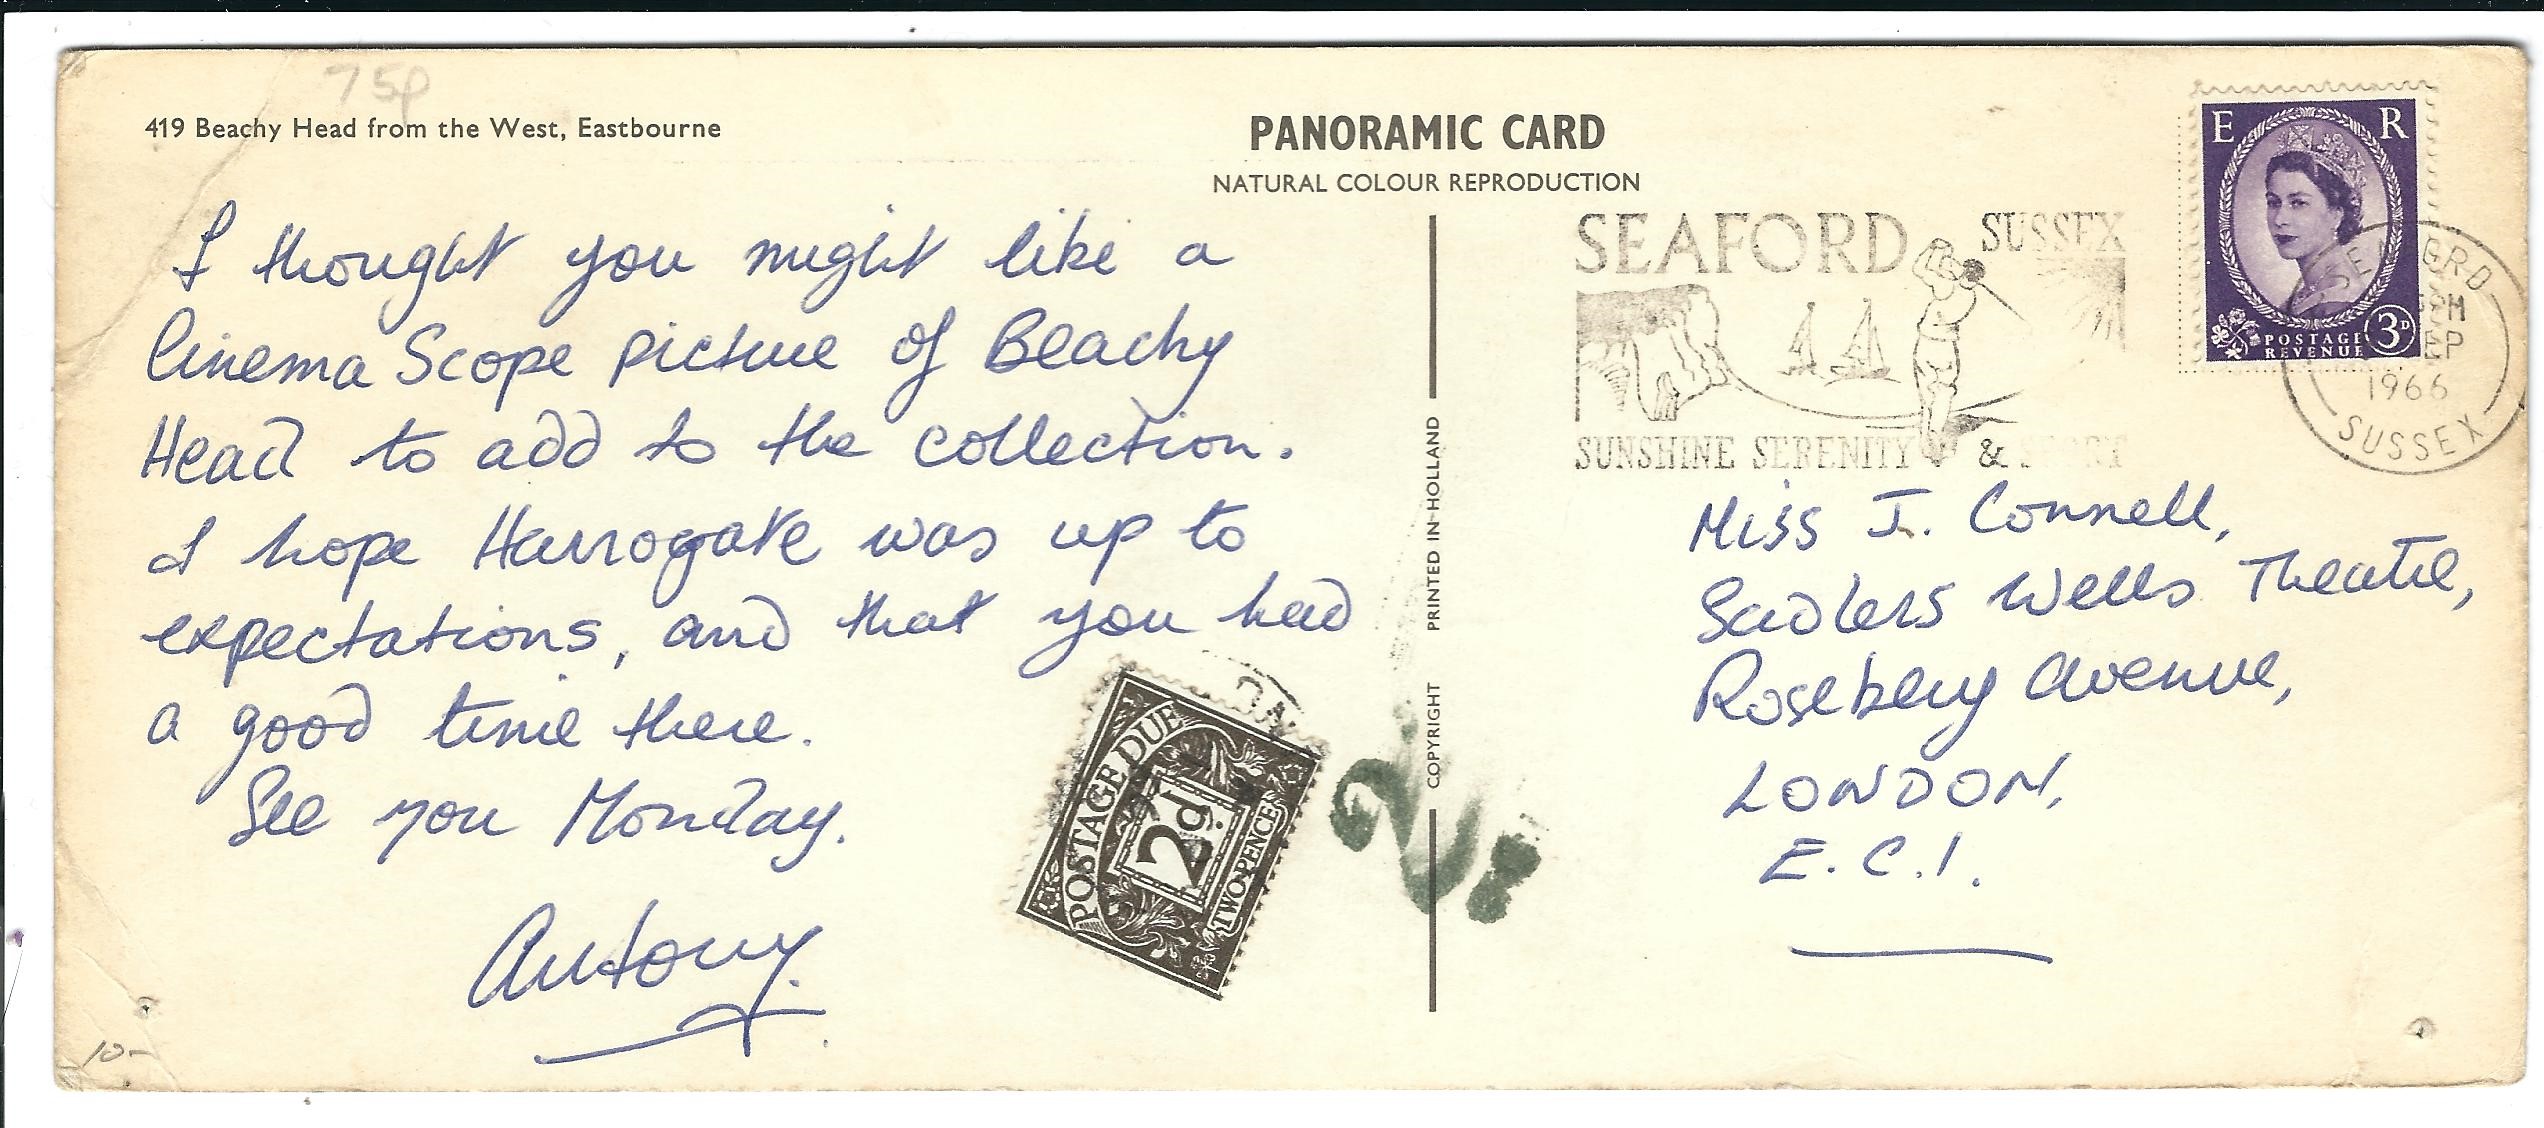 75p
419 Beachy Head from the West, Eastbourne
PANORAMIC CARD
NATURAL COLOUR REPRODUCTION
I thought you might like a
Cinema Scope picture of Beachy
Head to add to the collection.
I hope Harrogate was up to
expectations, and that you had
a good time there.
See you Monday.
Antony.
10-
POSTAGE DUE
2d.
TWO PENCE
COPYRIGHT PRINTED IN HOLLAND
SEAFORD SUSSEX
SUNSHINE SERENITY &
E R
POSTAGE
REVENUE
3D
SEAFORD
PM
SEP
1966
SUSSEX
Miss J. Connell,
Sadlers Wells Theatre,
Rosebery Avenue,
LONDON,
E.C.1.